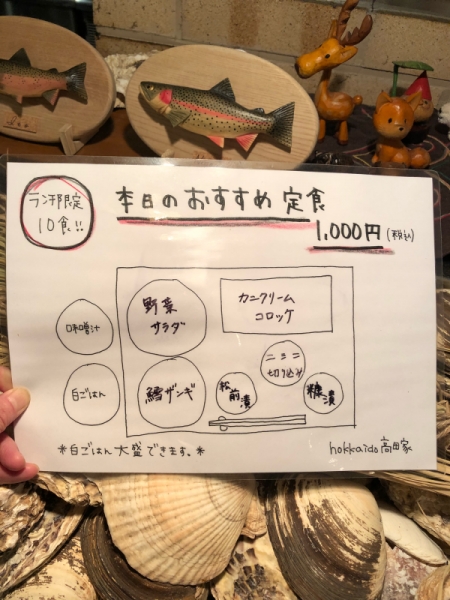 ランチ限定
10食!!
本日のおすすめ定食
1,000円(税込)
野菜
サラダ
カニクリーム
コロッケ
味噌汁
ニシン
切り込み
白ごはん
鱈ザンギ
松前漬
糠漬
*白ごはん大盛できます。*
hokkaido高田家